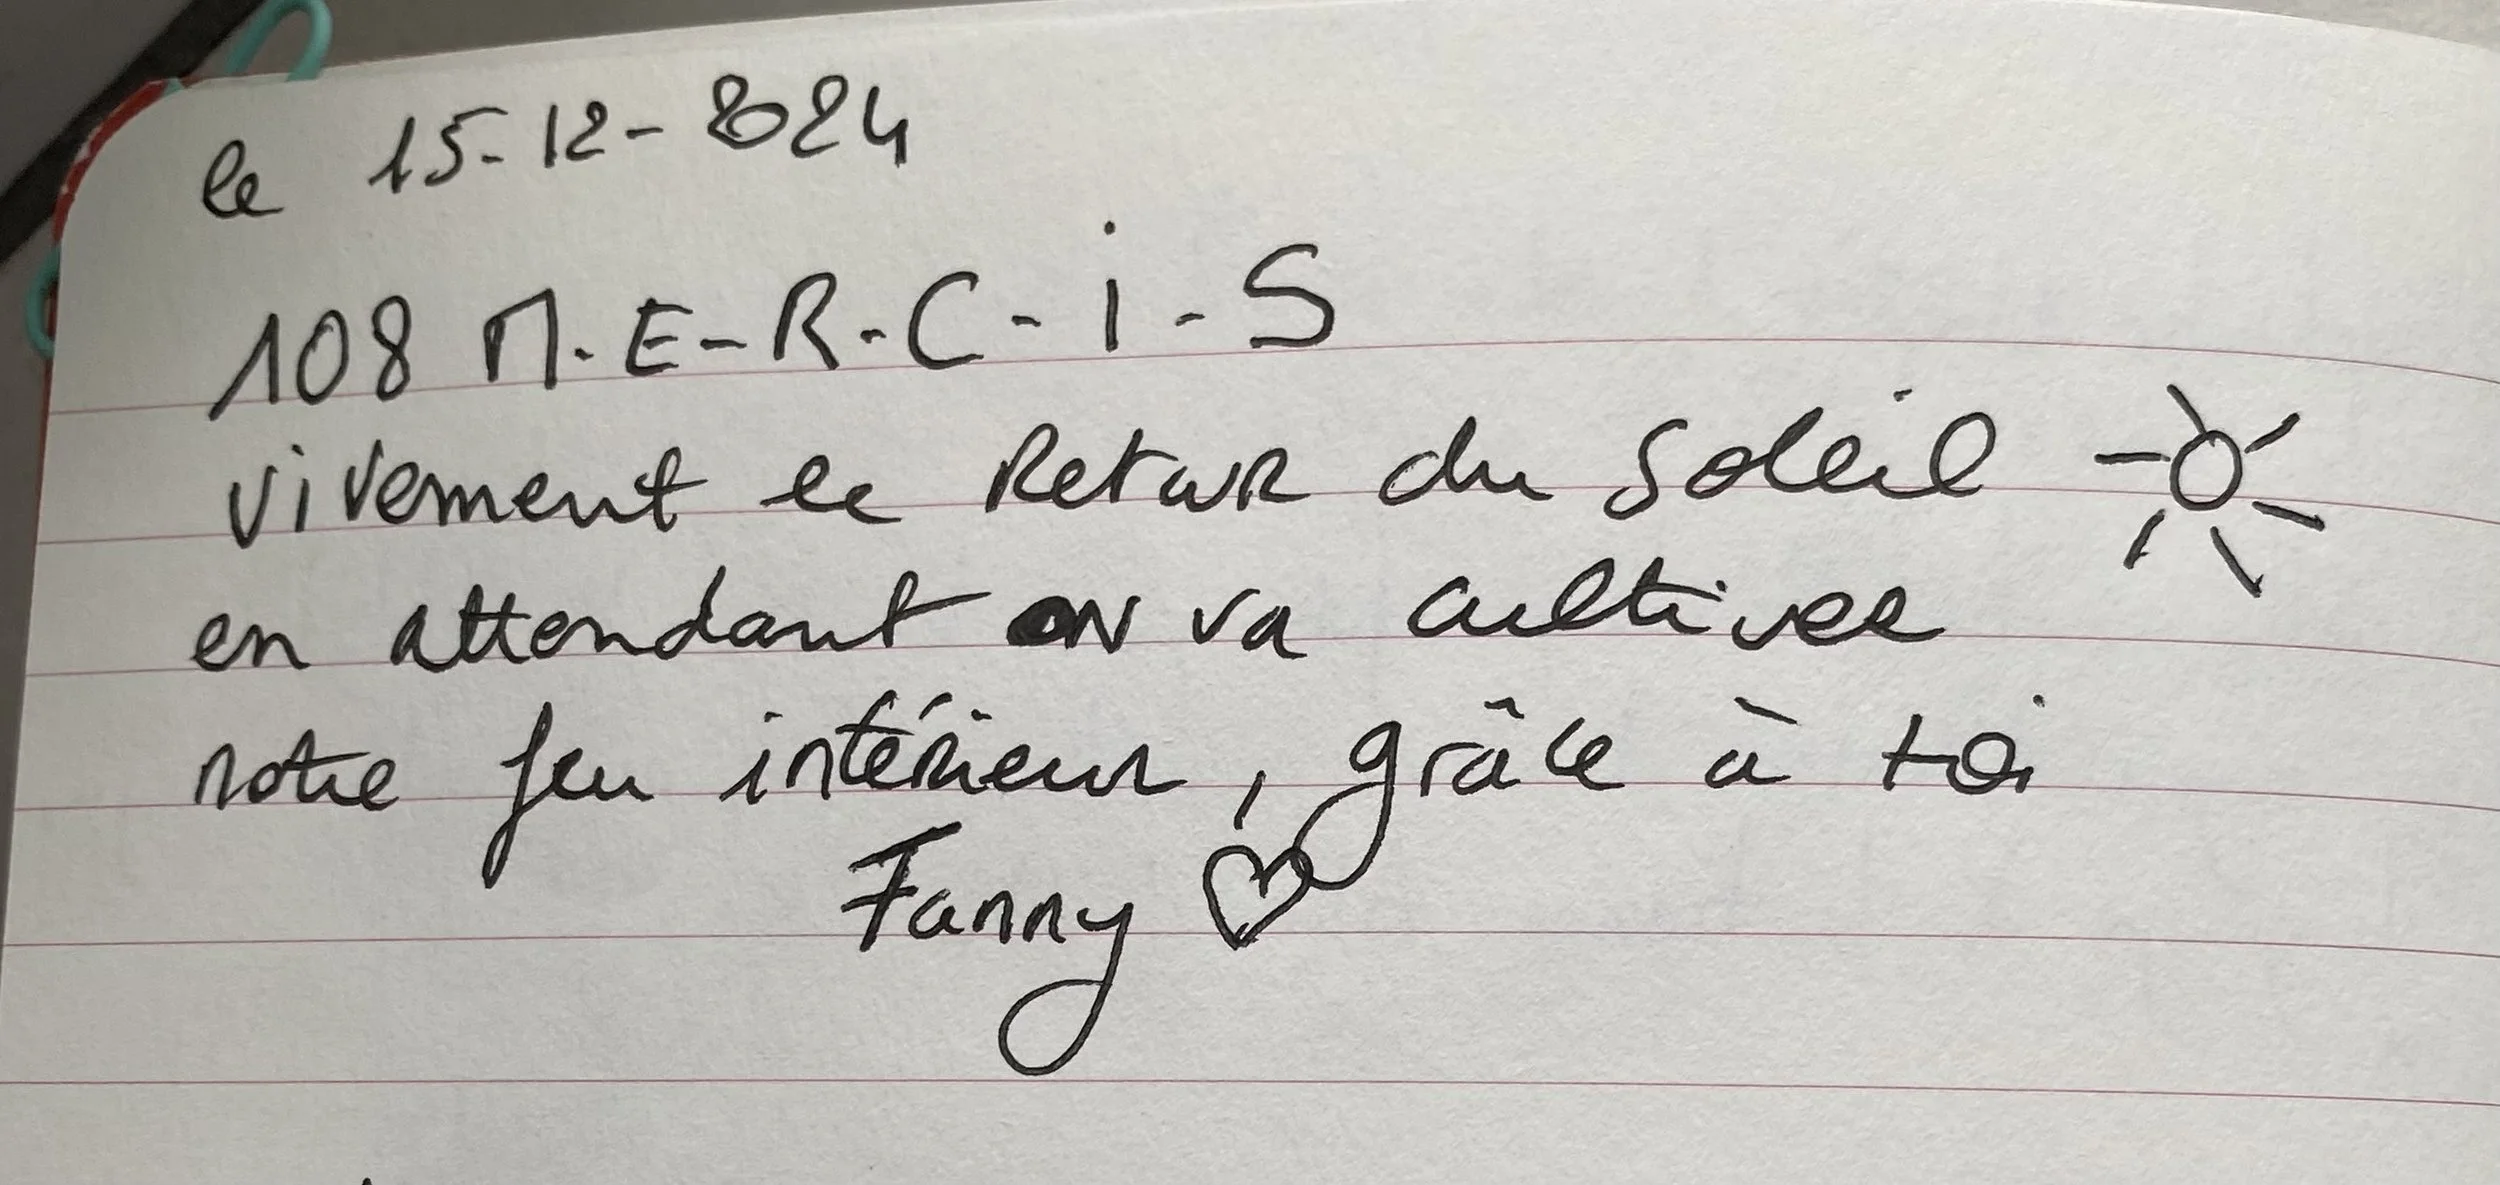 le 15-12-2024
108 M.E-R-C-i-S
vivement le Retour du Soleil
en attendant on va cultiver
notre feu intérieur, grâce à toi
Fanny